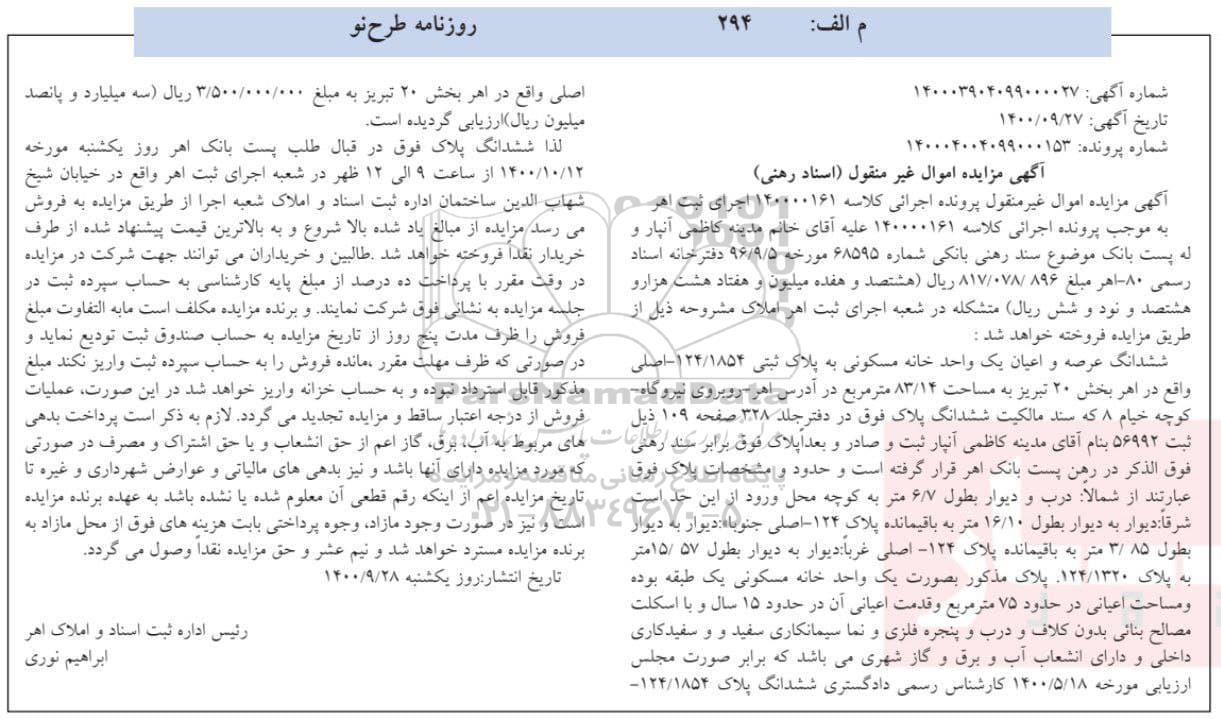 م الف: ۲۹۴ روزنامه طرح‌نو
شماره آگهی: ۱۴۰۰۰۳۹۰۴۰۹۹۰۰۰۰۲۷
تاریخ آگهی: ۱۴۰۰/۰۹/۲۷
شماره پرونده: ۱۴۰۰۰۴۰۰۴۰۹۹۰۰۰۱۵۳
آگهی مزایده اموال غیر منقول (اسناد رهنی)
آگهی مزایده اموال غیرمنقول پرونده اجرائی کلاسه ۱۴۰۰۰۰۱۶۱ اجرای ثبت اهر
به موجب پرونده اجرائی کلاسه ۱۴۰۰۰۰۱۶۱ علیه آقای خانم مدینه کاظمی آنپار و
له پست بانک موضوع سند رهنی بانکی شماره ۶۸۵۹۵ مورخه ۹۶/۹/۵ دفترخانه اسناد
رسمی ۸۰-اهر مبلغ ۸۹۶ /۸۱۷/۰۷۸ ریال (هشتصد و هفده میلیون و هفتاد هشت هزارو
هشتصد و نود و شش ریال) متشکله در شعبه اجرای ثبت اهر املاک مشروحه ذیل از
طریق مزایده فروخته خواهد شد :
ششدانگ عرصه و اعیان یک واحد خانه مسکونی به پلاک ثبتی ۱۲۴/۱۸۵۴-اصلی
واقع در اهر بخش ۲۰ تبریز به مساحت ۸۳/۱۴ مترمربع در آدرس اهر- روبروی نیروگاه-
کوچه خیام ۸ که سند مالکیت ششدانگ پلاک فوق در دفترجلد ۳۲۸ صفحه ۱۰۹ ذیل
ثبت ۵۶۹۹۲ بنام آقای مدینه کاظمی آنپار ثبت و صادر و بعداًپلاک فوق برابر سند رهنی
فوق الذکر در رهن پست بانک اهر قرار گرفته است و حدود و مشخصات پلاک فوق
عبارتند از شمالاً: درب و دیوار بطول ۶/۷ متر به کوچه محل ورود از این حد است
شرقاً:دیوار به دیوار بطول ۱۶/۱۰ متر به باقیمانده پلاک ۱۲۴-اصلی جنوباً:دیوار به دیوار
بطول ۸۵ /۳ متر به باقیمانده پلاک ۱۲۴- اصلی غرباً:دیوار به دیوار بطول ۵۷ /۱۵متر
به پلاک ۱۲۴/۱۳۲۰. پلاک مذکور بصورت یک واحد خانه مسکونی یک طبقه بوده
ومساحت اعیانی در حدود ۷۵ مترمربع وقدمت اعیانی آن در حدود ۱۵ سال و با اسکلت
مصالح بنائی بدون کلاف و درب و پنجره فلزی و نما سیمانکاری سفید و و سفیدکاری
داخلی و دارای انشعاب آب و برق و گاز شهری می باشد که برابر صورت مجلس
ارزیابی مورخه ۱۴۰۰/۵/۱۸ کارشناس رسمی دادگستری ششدانگ پلاک ۱۲۴/۱۸۵۴-
اصلی واقع در اهر بخش ۲۰ تبریز به مبلغ ۳/۵۰۰/۰۰۰/۰۰۰ ریال (سه میلیارد و پانصد
میلیون ریال)ارزیابی گردیده است.
لذا ششدانگ پلاک فوق در قبال طلب پست بانک اهر روز یکشنبه مورخه
۱۴۰۰/۱۰/۱۲ از ساعت ۹ الی ۱۲ ظهر در شعبه اجرای ثبت اهر واقع در خیابان شیخ
شهاب الدین ساختمان اداره ثبت اسناد و املاک شعبه اجرا از طریق مزایده به فروش
می رسد مزایده از مبالغ یاد شده بالا شروع و به بالاترین قیمت پیشنهاد شده از طرف
خریدار نقداً فروخته خواهد شد .طالبین و خریداران می توانند جهت شرکت در مزایده
در وقت مقرر با پرداخت ده درصد از مبلغ پایه کارشناسی به حساب سپرده ثبت در
جلسه مزایده به نشانی فوق شرکت نمایند. و برنده مزایده مکلف است مابه التفاوت مبلغ
فروش را ظرف مدت پنج روز از تاریخ مزایده به حساب صندوق ثبت تودیع نماید و
در صورتی که ظرف مهلت مقرر ،مانده فروش را به حساب سپرده ثبت واریز نکند مبلغ
مذکور قابل استرداد نبوده و به حساب خزانه واریز خواهد شد در این صورت، عملیات
فروش از درجه اعتبار ساقط و مزایده تجدید می گردد. لازم به ذکر است پرداخت بدهی
های مربوط به آب، برق، گاز اعم از حق انشعاب و یا حق اشتراک و مصرف در صورتی
که مورد مزایده دارای آنها باشد و نیز بدهی های مالیاتی و عوارض شهرداری و غیره تا
تاریخ مزایده اعم از اینکه رقم قطعی آن معلوم شده یا نشده باشد به عهده برنده مزایده
است و نیز در صورت وجود مازاد، وجوه پرداختی بابت هزینه های فوق از محل مازاد به
برنده مزایده مسترد خواهد شد و نیم عشر و حق مزایده نقداً وصول می گردد.
تاریخ انتشار:روز یکشنبه ۱۴۰۰/۹/۲۸
رئیس اداره ثبت اسناد و املاک اهر
ابراهیم نوری
ParsNamadData
پایگاه اطلاع رسانی مناقصه و مزایده
۰۲۱-۸۸۳۴۹۶۷۰-۵